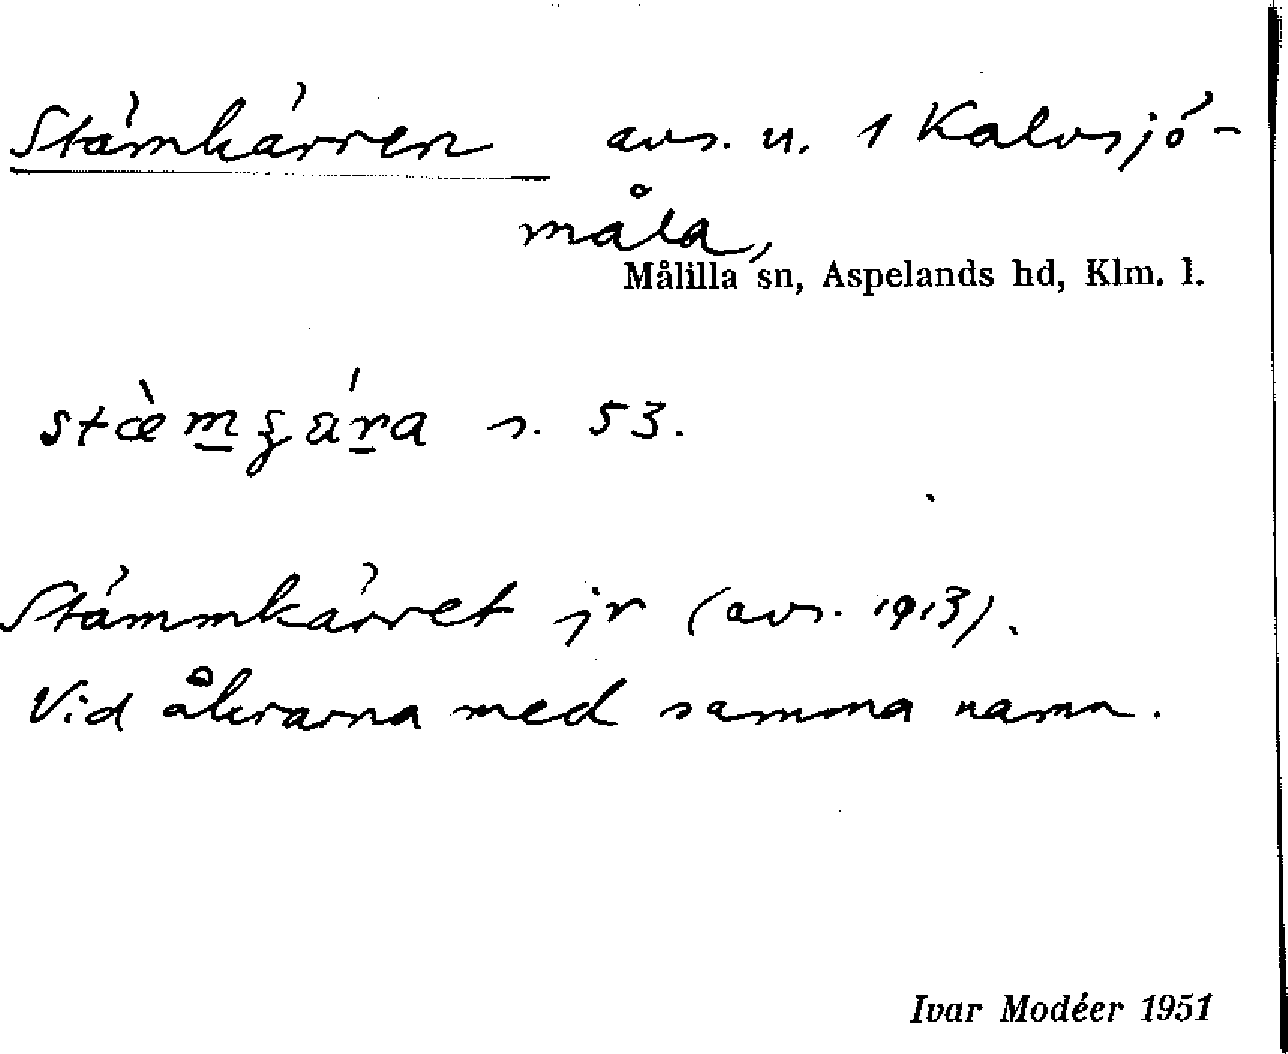 Stämkärren avs. u. 1 Kalvsjö-
måla,
Målilla sn, Aspelands hd, Klm. l.
stæ̀m̲ʒár̲a s. 53.
Stämmkärret jr (avs. 1913).
Vid åkrarna med samma namn.
Ivar Modéer 1951